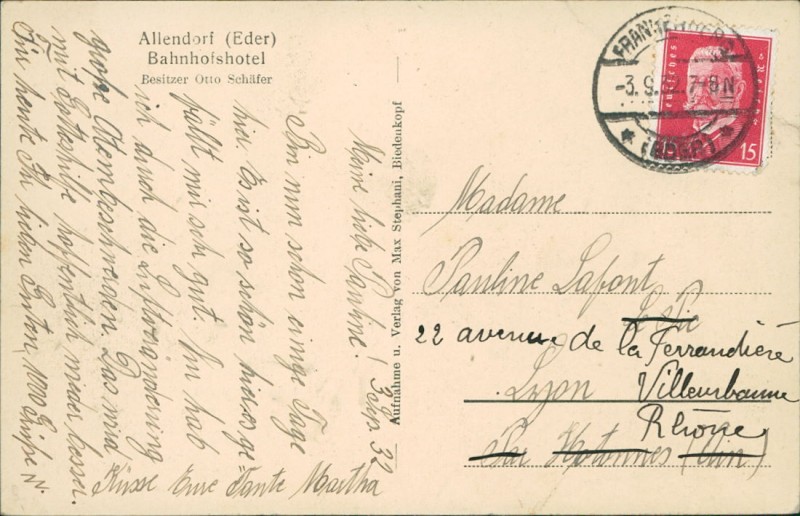 Allendorf (Eder)
Bahnhofshotel
Besitzer Otto Schäfer
Meine liebe Pauline! 3 Sep. 32
Bin nun schon einige Tage
hier. Es ist so schön hier es ge-
fällt mir sehr gut. Nur hab
ich durch die Luftveränderung
große Atembeschwerden. Das wird
mit Gotteshilfe hoffentlich wieder besser.
Für heute Ihr lieben 1000 Grüße u.
Küsse Eure Tante Martha
Aufnahme u. Verlag von Max Stephani, Biedenkopf
FRANKENBERG
-3.9.32.7-8N
* (EDER) *
Deutsches Reich
15
Madame
Pauline Lafont
22 avenue de la Ferrandière
Lyon Villeurbanne
Rhône
Par Hotonnes (Ain)